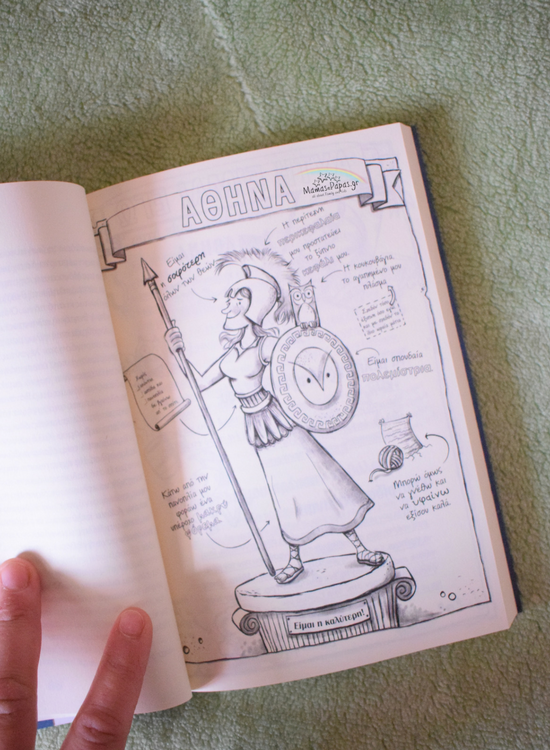 ΑΘΗΝΑ
MamasPapas.gr
Είμαι
η σοφότερη
όλων των θεών
Η περίτεχνη
περικεφαλαία
μου προστατεύει
το ξύπνιο
κεφάλι μου
Η κουκουβάγια,
το αγαπημένο μου
πλάσμα
Είμαι σπουδαία
πολεμίστρια
Μπορώ όμως
να γνέθω και
να υφαίνω
εξίσου καλά
Κάτω από την
πανοπλία μου
φοράω ένα
υπέροχο
φόρεμα
Είμαι η καλύτερη!